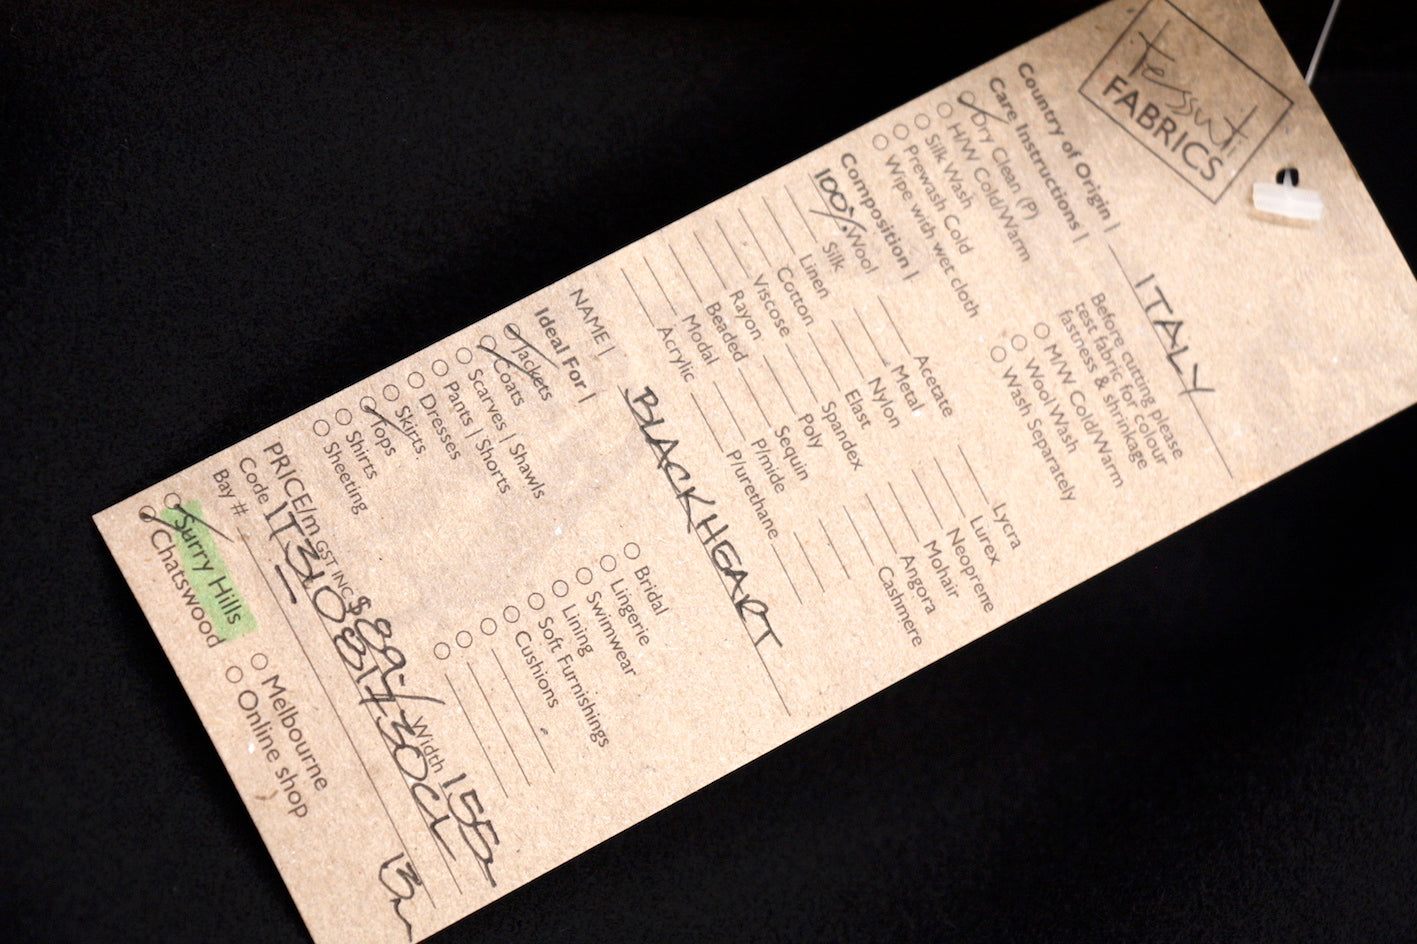 Tessuti
FABRICS
Country of Origin | ITALY
Care Instructions |
Dry Clean (P)
H/W Cold/Warm
Silk Wash
Prewash Cold
Wipe with wet cloth
Before cutting please
test fabric for colour
fastness & shrinkage
M/W Cold/Warm
Wool Wash
Wash Separately
Composition |
100% Wool
Silk
Linen
Cotton
Viscose
Rayon
Beaded
Modal
Acrylic
Acetate
Metal
Nylon
Elast
Spandex
Poly
Sequin
P/mide
P/urethane
Lycra
Lurex
Neoprene
Mohair
Angora
Cashmere
NAME | BLACK HEART
Ideal For |
Jackets
Coats
Scarves | Shawls
Pants | Shorts
Dresses
Skirts
Tops
Shirts
Sheeting
Bridal
Lingerie
Swimwear
Lining
Soft Furnishings
Cushions
PRICE/m GST INC $89-/ Width 155
Code
Bay # 13m
Surry Hills
Chatswood
Melbourne
Online shop